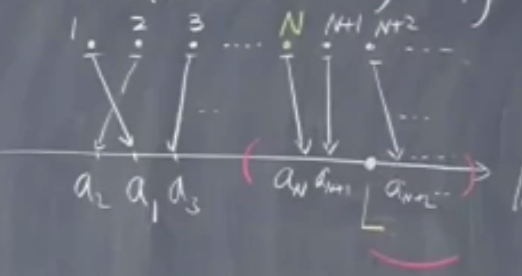 1 2 3 .... N N+1 N+2 ....
... ...
....
a₂ a₁ a₃ ( a_N a_{N+1} a_{N+2} .. )
L